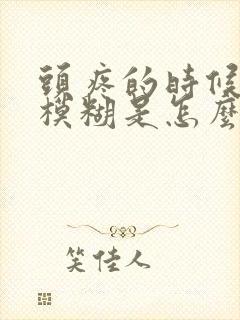 頭疼的時候
模糊是怎麼
笑佳人